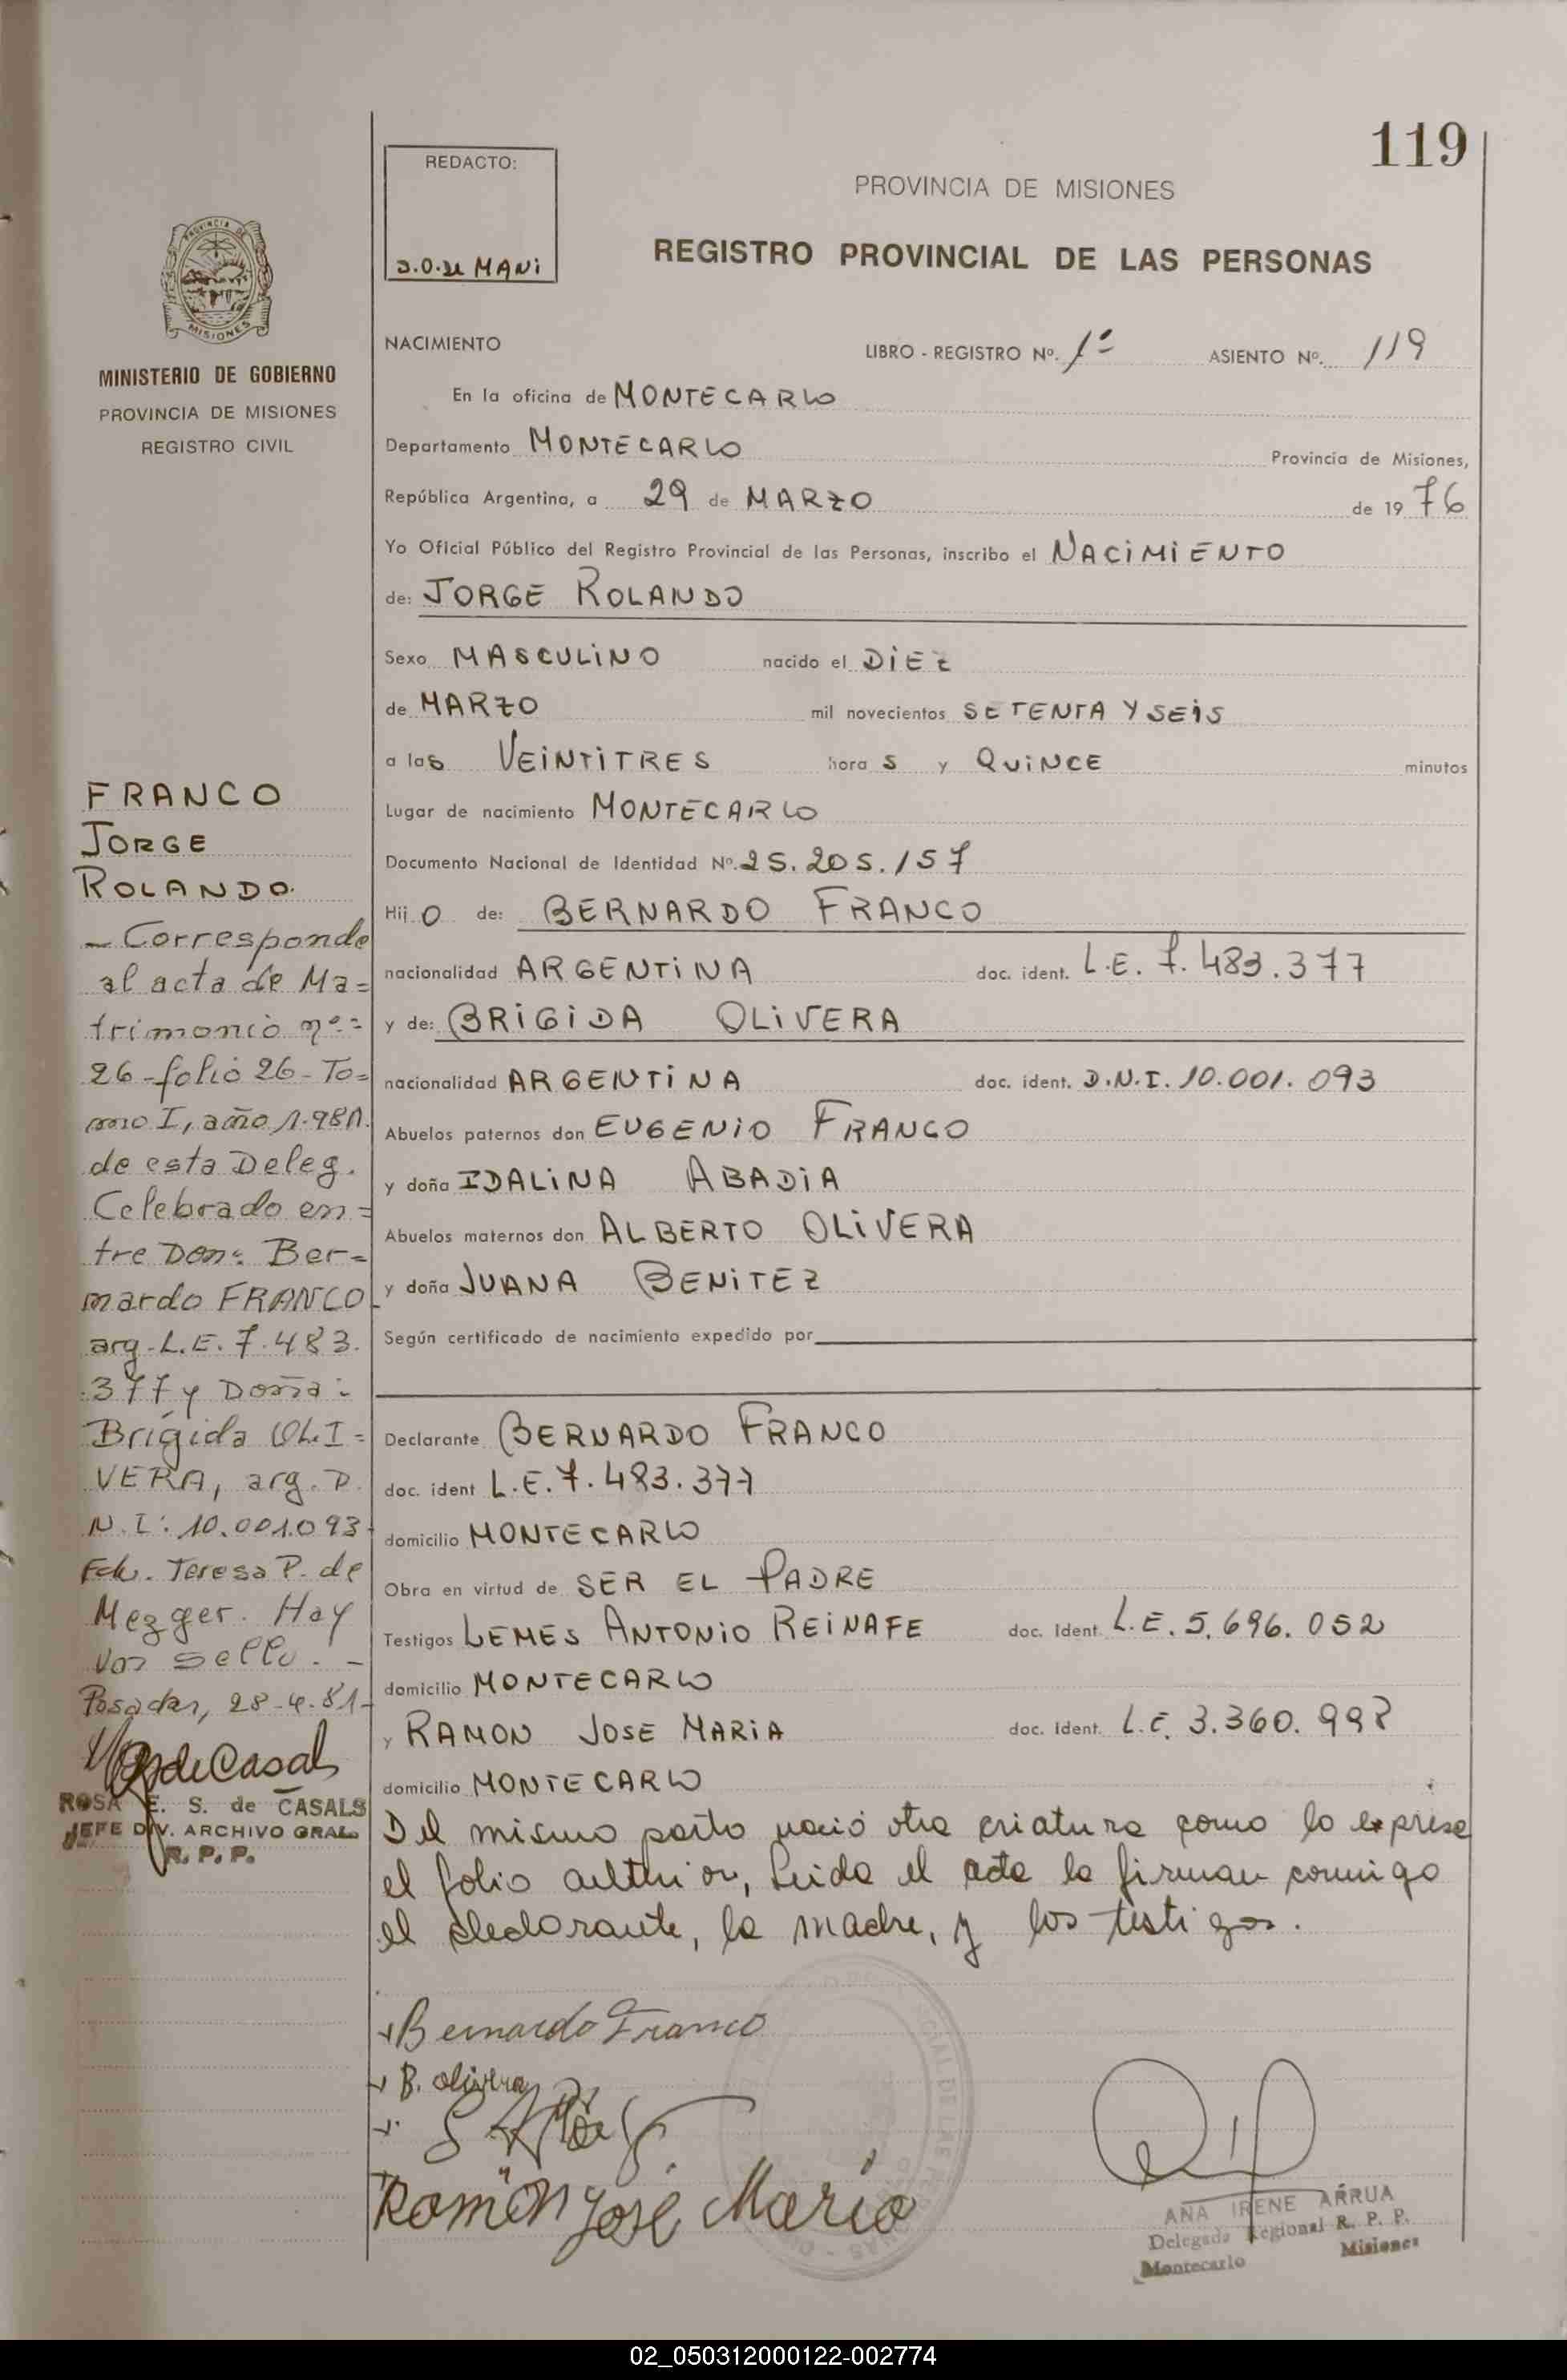 119
REDACTO:
MANI
PROVINCIA DE MISIONES
REGISTRO PROVINCIAL DE LAS PERSONAS
PROVINCIA DE MISIONES
MINISTERIO DE GOBIERNO
PROVINCIA DE MISIONES
REGISTRO CIVIL
NACIMIENTO LIBRO - REGISTRO Nº. 1º ASIENTO Nº. 119
En la oficina de MONTECARLO
Departamento MONTECARLO Provincia de Misiones,
República Argentina, a 29 de MARZO de 19 76
Yo Oficial Público del Registro Provincial de las Personas, inscribo el NACIMIENTO
de: JORGE ROLANDO
Sexo MASCULINO nacido el DIEZ
de MARZO mil novecientos SETENTA Y SEIS
a las VEINTITRES hora s y QUINCE minutos
Lugar de nacimiento MONTECARLO
Documento Nacional de Identidad Nº. 25.205.157
Hij O de: BERNARDO FRANCO
nacionalidad ARGENTINA doc. ident. L.E. 7.483.377
y de: BRIGIDA OLIVERA
nacionalidad ARGENTINA doc. ident. D.N.I. 10.001.093
Abuelos paternos don EUGENIO FRANCO
y doña IDALINA ABADIA
Abuelos maternos don ALBERTO OLIVERA
y doña JUANA BENITEZ
Según certificado de nacimiento expedido por
Declarante BERNARDO FRANCO
doc. ident L.E. 7.483.377
domicilio MONTECARLO
Obra en virtud de SER EL PADRE
Testigos LEMES ANTONIO REINAFE doc. Ident. L.E. 5.696.052
domicilio MONTECARLO
y RAMON JOSE MARIA doc. Ident. L.E. 3.360.992
domicilio MONTECARLO
Del mismo parto nació otra criatura como lo expresa
el folio anterior, Leida el acta la firman conmigo
el declarante, la madre, y los testigos.
Bernardo Franco
B. olivera
Ramón José María
ANA IRENE ARRUA
Delegada Regional R. P. P.
Montecarlo Misiones
FRANCO
JORGE
ROLANDO.
- Corresponde
al acta de Ma=
trimonio nº=
26-folio 26-To=
mo I, año 1.981.
de esta Deleg.
Celebrado en=
tre Don: Ber-
nardo FRANCO
arg-L.E. 7.483.
377 y Doña:
Brígida OLI=
VERA, arg. D.
N.I: 10.001.093
Fdo. Teresa P. de
Mezger. Hay
un sello. -
Posadas, 28-4-81-
ROSA E. S. de CASALS
JEFE DIV. ARCHIVO GRAL.
R. P. P.
02_050312000122-002774